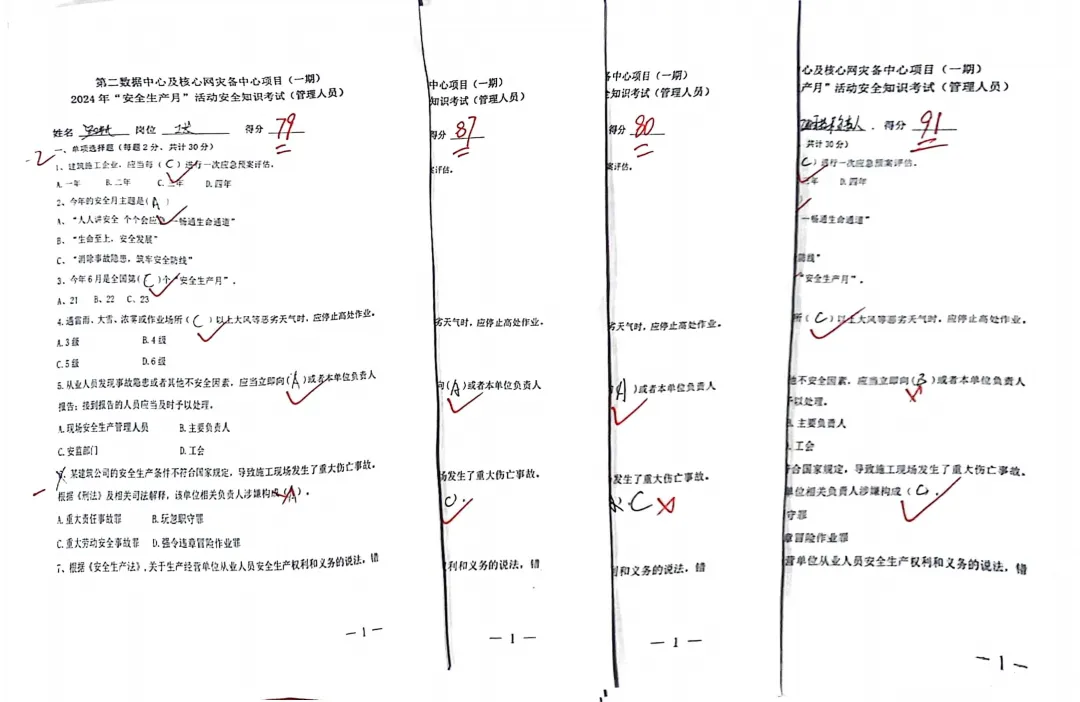 第二数据中心及核心网灾备中心项目（一期）
2024年“安全生产月”活动安全知识考试（管理人员）
姓名 岗位 得分 79
-2
一、单项选择题（每题2分，共计30分）
1、建筑施工企业，应当每（C）进行一次应急预案评估。
A.一年 B.二年 C.三年 D.四年
2、今年的安全月主题是(A)
A、“人人讲安全 个个会应急 一畅通生命通道”
B、“生命至上，安全发展”
C、“消除事故隐患，筑牢安全防线”
3、今年6月是全国第(C)个“安全生产月”。
A、21 B、22 C、23
4.遇雷雨、大雪、浓雾或作业场所（C）以上大风等恶劣天气时，应停止高处作业。
A.3级 B.4级
C.5级 D.6级
5.从业人员发现事故隐患或者其他不安全因素，应当立即向(A)或者本单位负责人
报告；接到报告的人员应当及时予以处理。
A.现场安全生产管理人员 B.主要负责人
C.安监部门 D.工会
某建筑公司的安全生产条件不符合国家规定，导致施工现场发生了重大伤亡事故。
根据《刑法》及相关司法解释，该单位相关负责人涉嫌构成(A)。
A.重大责任事故罪 B.玩忽职守罪
C.重大劳动安全事故罪 D.强令违章冒险作业罪
7、根据《安全生产法》,关于生产经营单位从业人员安全生产权利和义务的说法，错
—1—
中心项目（一期）
知识考试（管理人员）
得分 87
案评估。
劣天气时，应停止高处作业。
向(A)或者本单位负责人
场发生了重大伤亡事故。
C.
权利和义务的说法，错
—1—
备中心项目（一期）
全知识考试（管理人员）
得分 80
案评估。
劣天气时，应停止高处作业。
A)或者本单位负责人
发生了重大伤亡事故。
C
利和义务的说法，错
—1—
心及核心网灾备中心项目（一期）
产月”活动安全知识考试（管理人员）
得分 91
共计30分）
C）进行一次应急预案评估。
三年 D.四年
一畅通生命通道”
防线”
“安全生产月”。
所（C）以上大风等恶劣天气时，应停止高处作业。
他不安全因素，应当立即向(B)或者本单位负责人
予以处理。
B.主要负责人
D.工会
符合国家规定，导致施工现场发生了重大伤亡事故。
单位相关负责人涉嫌构成（C）.
守罪
章冒险作业罪
营单位从业人员安全生产权利和义务的说法，错
—1—